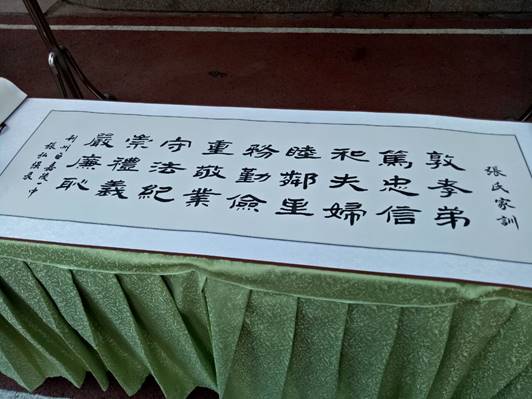 張氏家訓
敦孝弟
篤忠信
和夫婦
睦鄰里
務勤儉
重敬業
守法紀
崇禮義
嚴廉恥